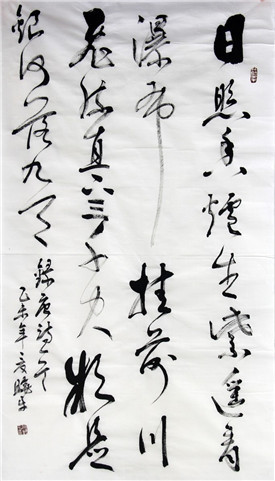 日照香爐生紫遥看
瀑布挂前川
飛流直下三千尺疑是
銀河落九天
錄唐詩一首
乙未年夏